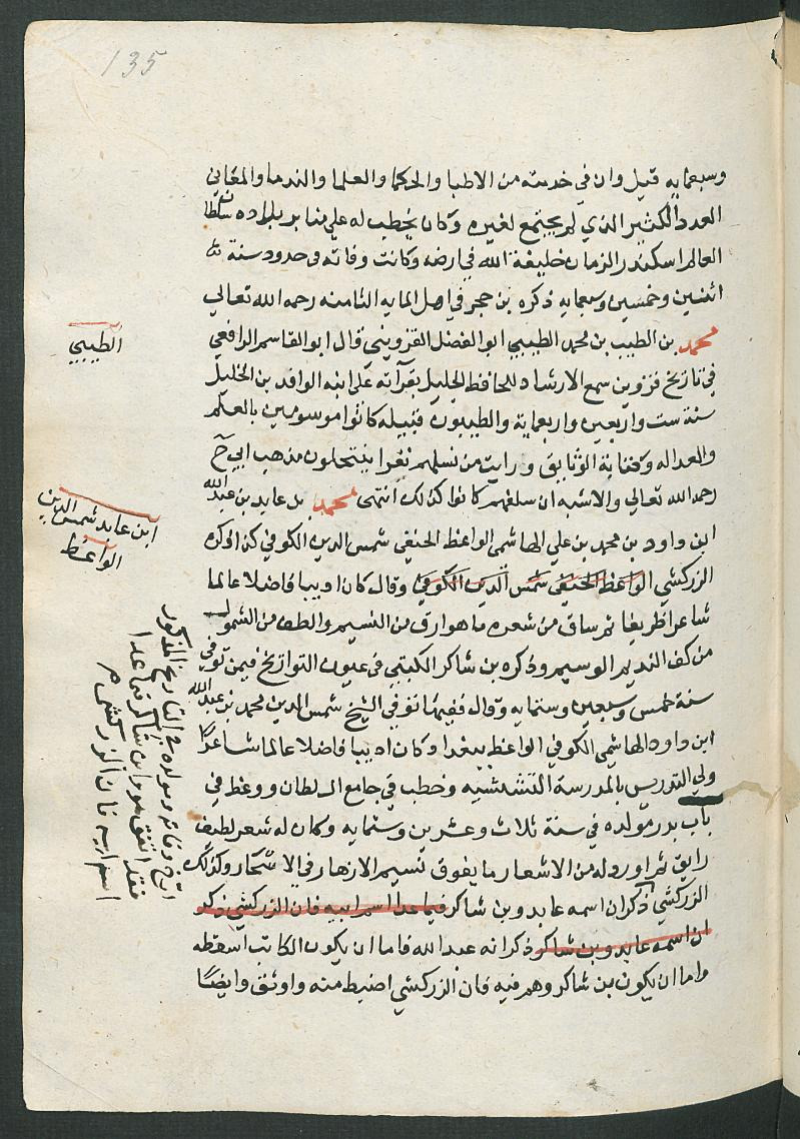 135
وسبعمايه قيل وان في خدمته من الاطبا والحكما والعلما والندما والمغاني
العدد الكثير الذي لم يجتمع لغيره وكان يخطب له علي منابر بلاده سلطان
العالم اسكندر الزمان خليفة الله في ارضه وكانت وفاته في حدود سنة
اثنين وخمسين وسبعمايه ذكره بن حجر في اهل المايه الثامنه رحمه الله تعالي
محمد بن الطيب بن محمد الطيبي ابو الفضل القزويني قال ابو القاسم الرافعي
في تاريخ قزوين سمع الارشاد للحافظ الخليل بقرآته علي ابنه الواقد بن الخليل
سنة ست واربعين واربعماية والطيبيون قبيله كانوا موسومين بالعلم
والعداله وكتابة الوثايق ورايت من نسلهم نفرا ينتحلون مذهب ابي ح
رحمه الله تعالي والاشبه ان سلفهم كانوا كذلك انتهي محمد بن عابد بن عبد الله
ابن داود بن محمد بن علي الهاشمي الواعظ الحنفي شمس الدين الكوفي كذا ذكره
الزركشي الواعظ الحنفي شمس الدين الكوفي وقال كان اديبا فاضلا عالما
شاعرا ظريفا ثم ساق من شعره ما هو ارق من النسيم والطف من الشمول
من كف النديم الوسيم وذكره بن شاكر الكتبي في عيون التواريخ فيمن توفي
سنة خمس وسبعين وستمايه وقال فيها توفي الشيخ شمس الدين محمد بن عبد الله
ابن داود الهاشمي الكوفي الواعظ ببغداد وكان اديبا فاضلا عالما شاعرًا
ولي التدريس بالمدرسة التتشيه وخطب في جامع السلطان ووعظ في
باب بدر مولده في سنة ثلاث وعشرين وستمايه وكان له شعر لطيف
رايق ثم اورد له من الاشعار ما يفوق نسيم الازهار في الاسحار وكذلك
الزركشي ذكر ان اسمه عابد وبن شاكر فيما عدا اسم ابيه فان الزركشي ذكر
ان اسمه عابد وبن شاكر ذكر انه عبد الله فاما ان يكون الكاتب اسقطه
واما ان يكون بن شاكر وهم فيه فان الزركشي اضبط منه واوثق وايضًا
الطيبي
ابن عابد شمس الدين
الواعظ
ارّخ وفاته ومولده في التاريخ المذكور
فقد اتفق هو وابن شاكر فيما عدا
اسم ابيه فان الزركشي م